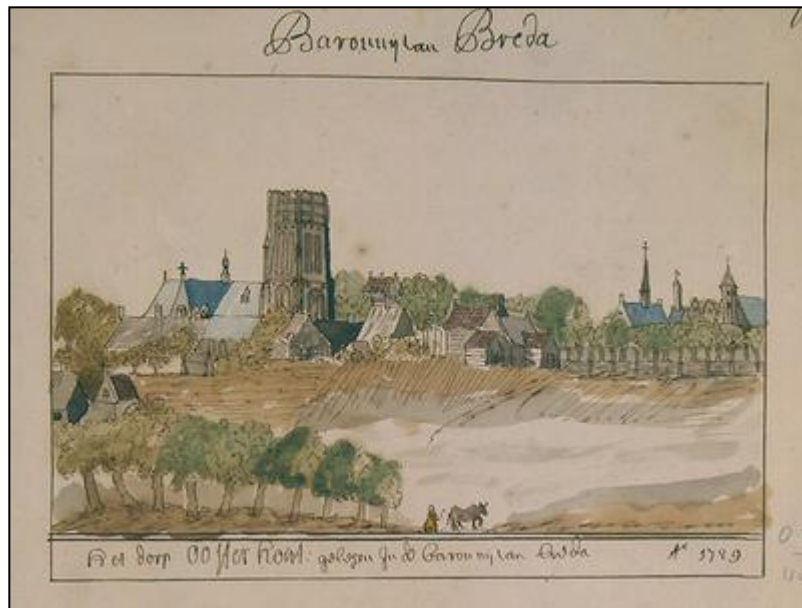 Baronnij van Breda
Het dorp Oosterhout: gelegen In de Baronnij van Breda Ao 1789